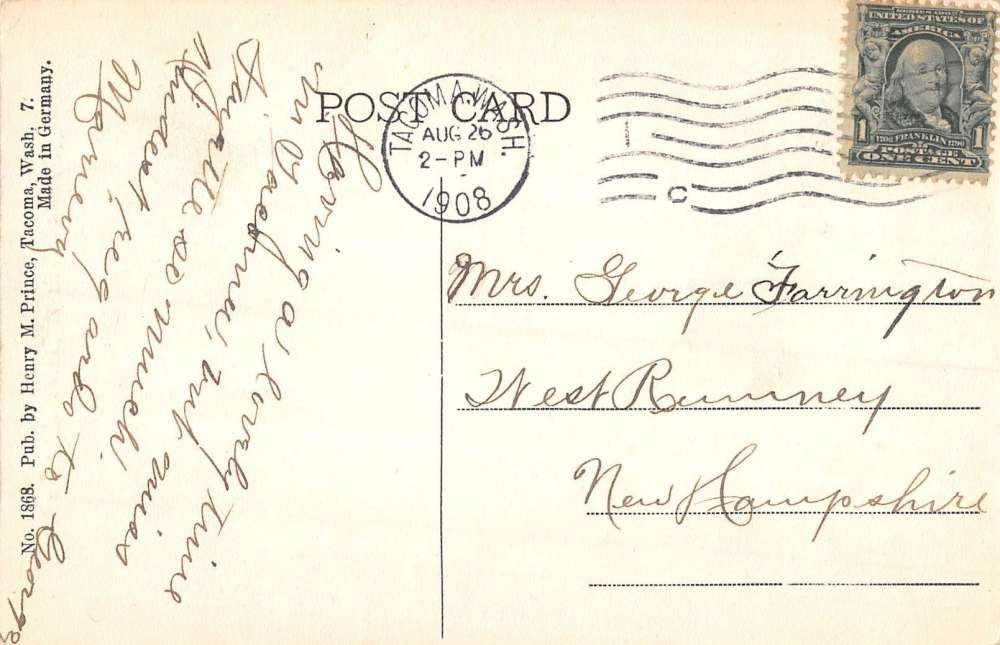 POST CARD
TACOMA, WASH.
AUG 26
2-PM
1908
C
SERIES 1902
UNITED STATES OF
AMERICA
1 1706 FRANKLIN 1790 1
POSTAGE
ONE CENT
Having a lovely time
in Tacoma, but miss
so much.
Kindest regards to George
Mrs. George Farrington
West Rumney
New Hampshire
No. 1868. Pub. by Henry M. Prince, Tacoma, Wash. 7.
Made in Germany.